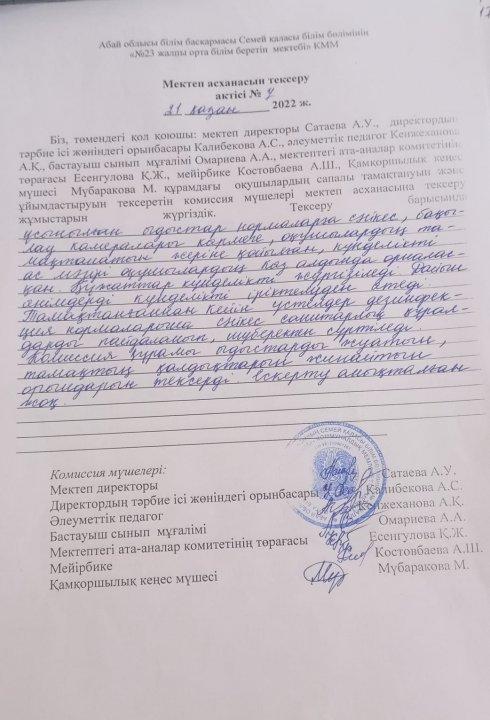 Абай облысы білім басқармасы Семей қаласы білім бөлімінің
«№23 жалпы орта білім беретін мектебі» КММ
Мектеп асханасын тексеру
актісі № 4
21 қазан 2022 ж.
Біз, төмендегі қол қоюшы: мектеп директоры Сатаева А.У., директордың
тәрбие ісі жөніндегі орынбасары Калибекова А.С., әлеуметтік педагог Кенжеханова
А.Қ., бастауыш сынып мұғалімі Омариева А.А., мектептегі ата-аналар комитетінің
төрағасы Есенгулова Қ.Ж., мейірбике Костовбаева А.Ш., Қамқоршылық кеңес
мүшесі Мұбаракова М. құрамдағы оқушылардың сапалы тамақтануын және
ұйымдастыруын тексеретін комиссия мүшелері мектеп асханасына тексеру
жұмыстарын жүргіздік. Тексеру барысында
ұсынылған ыдыстар нормаларға сәйкес, бақы-
лау камералары көрмеге, оқушылардың та-
мақтанатын жеріне қойылған, күнделікті
ас мәзірі оқушылардың көз алдында орналас-
қан. Құжаттар күнделікті жүргізіледі. Дайын
өнімдерді күнделікті іріктелуден өтеді.
Тамақтанғаннан кейін үстелдер дезинфек-
ция нормаларына сәйкес санитарлық құрал-
дарды пайдаланып, шүберекпен сүртіледі.
Комиссия құрамы ыдыстарды жуатын,
тамақтың қалдықтарын жинайтын
орындарын тексерді. Ескерту анықталған
жоқ.
Комиссия мүшелері:
Мектеп директоры Сатаева А.У.
Директордың тәрбие ісі жөніндегі орынбасары Калибекова А.С.
Әлеуметтік педагог Кенжеханова А.Қ.
Бастауыш сынып мұғалімі Омариева А.А.
Мектептегі ата-аналар комитетінің төрағасы Есенгулова Қ.Ж.
Мейірбике Костовбаева А.Ш.
Қамқоршылық кеңес мүшесі Мұбаракова М.